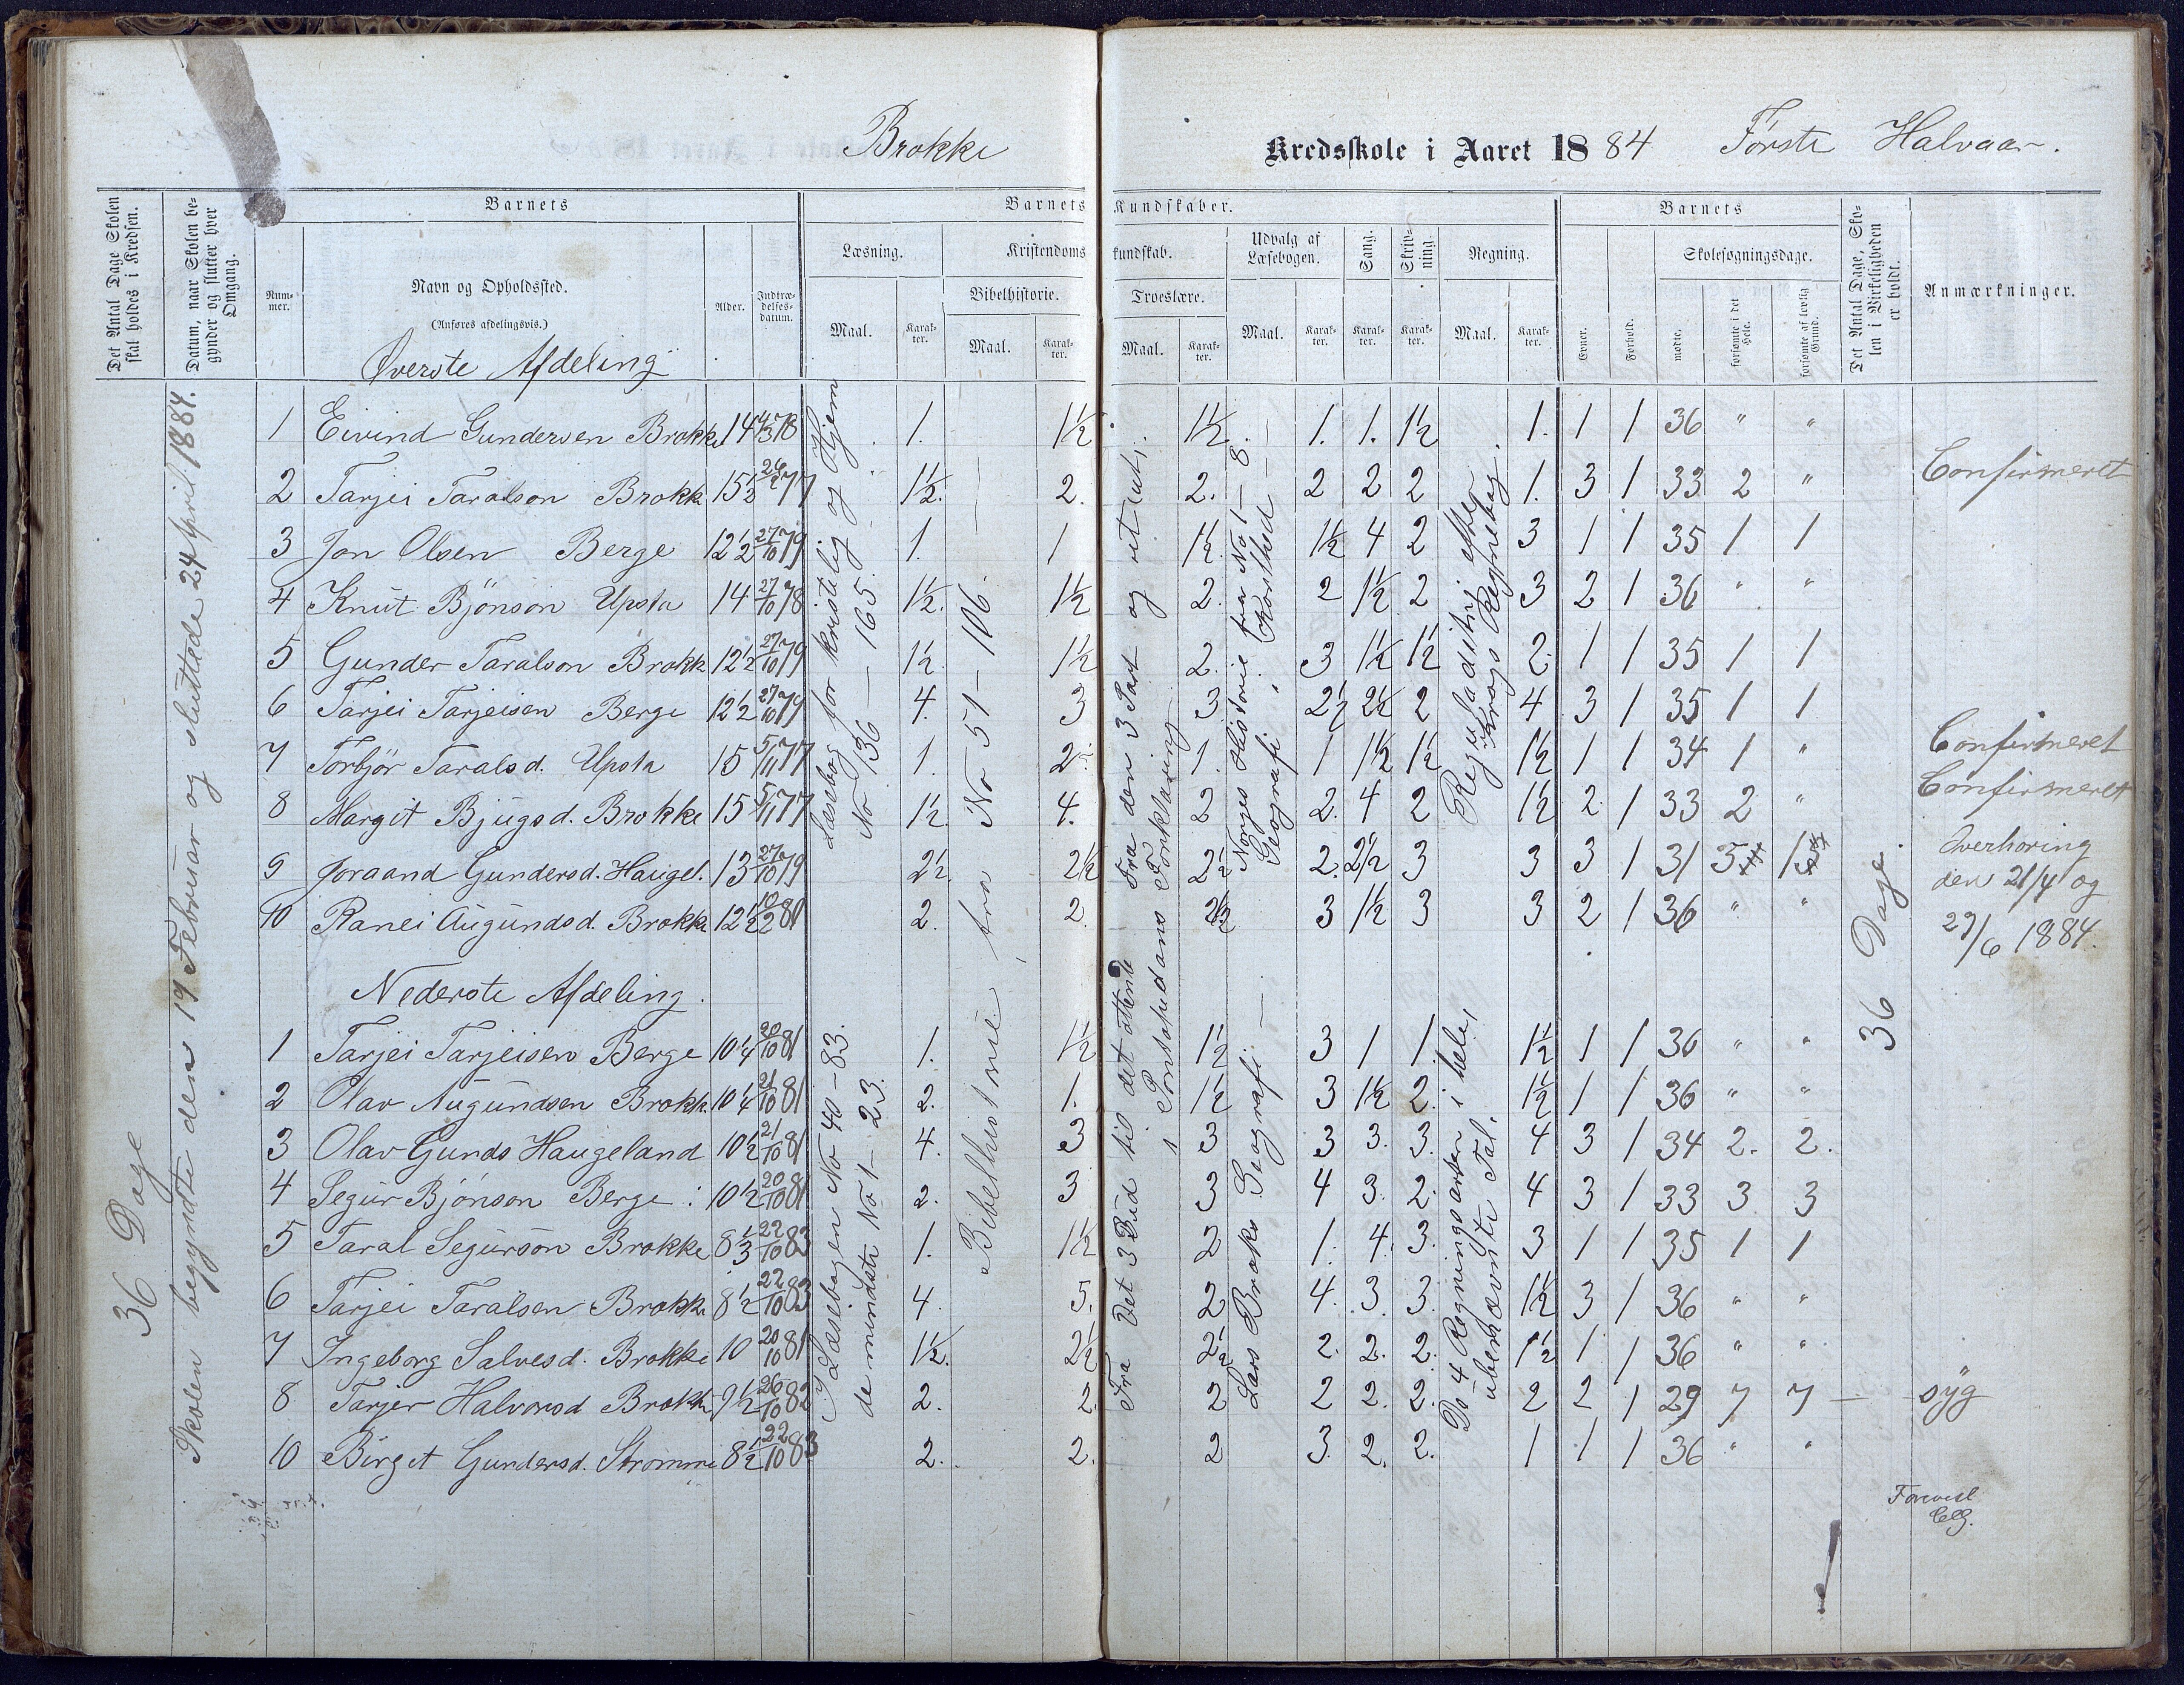 Brokke Kredsskole i Aaret 1884 Første Halvaar.
Det Antal Dage Skolen skal holdes i Kredsen.
Datum, naar Skolen begynder og slutter hver Omgang.
Barnets
Nummer.
Navn og Opholdssted.
(Anføres afdelingsvis.)
Alder.
Indtrædelsesdatum.
Barnets Kundskaber.
Læsning.
Maal.
Karakter.
Kristendomskundskab.
Bibelhistorie.
Maal.
Karakter.
Troeslære.
Maal.
Karakter.
Udvalg af Læsebogen.
Maal.
Karakter.
Sang.
Karakter.
Skrivning.
Karakter.
Regning.
Maal.
Karakter.
Barnets
Evner.
Forhold.
Skolesøgningsdage.
mødte.
forsømte i det Hele.
forsømte af lovlig Grund.
Det Antal Dage, Skolen i Virkeligheden er holdt.
Anmærkninger.
36 Dage
Skolen begyndte den 19 Februar og sluttede 24 April 1884.
Øverste Afdeling
1 Eivind Gundersen Brokke 14 4/3 78 1. 1½ 1½ 1. 1. 1½ 1. 1 1 36 " "
2 Tarjei Taralson Brokk 15⅓ 77 1½. 2. 2. 2 2 2 1. 3 1 33 2 " Confirmeret
3 Jon Olsen Berge 12½ 27/10 79 1. 1 1½ 1½ 4 2 3 1 1 35 1 1
4 Knut Bjönson Upsta 14 27/10 78 1½. 1½ 2. 2 1½ 2 3 2 1 36 " "
5 Gunder Taralson Brokk 12½ 27/10 79 1½ 1½ 2. 3 1½ 1½ 2. 1 1 35 1 1
6 Tarjei Tarjeisen Berge 12½ 27/10 79 4. 3 3 2½ 2½ 2 4 3 1 35 1 1
7 Torbjör Taralsd. Upsta 15 5/11 77 1. 2 1. 1 1½ 1½ 1½ 1 1 34 1 " Confirmeret
8 Margit Bjugsd. Brokke 15 5/11 77 1½ 4. 2 2. 4 2 1½ 2 1 33 2 " Confirmeret
9 Joraand Gundersd. Haugel. 13 27/10 79 2½. 2½ 2½ 2. 2½ 3 3 3 1 31 5
10 Ranei Augundsd. Brokke 12½ 81 2. 2. 3 1½ 3 3 2 1 36 " "
Læsebog for kristelig og Hjem
No 136 – 165.
Bibelhistorie fra No 51 – 106.
Fra den 3 Part og vit ut,
i Pontopidans Forklaring
Norges Historie fra No 1 – 8
Geografi
Reguladitri efter
Krogs Regnebog.
Overhøring
den 21/4 og
29/6 1884.
36 Dage.
Nederste Afdeling.
1 Tarjei Tarjeisen Berge 10¼ 20/10 81 1. 1½ 1½ 3 1 1 1½ 1 1 36 " "
2 Olav Augundsen Brokk. 10¼ 21/10 81 2. 1. 1½ 3 1½ 2. 1½ 1 1 36 " "
3 Olav Gunds Haugeland 10½ 21/10 81 4. 3 3 3 3. 3. 4 3 1 34 2. 2.
4 Segur Bjönson Berge 10½ 20/10 81 2. 3 3 4 3. 2. 4 3 1 33 3 3
5 Taral Segurson Brokke 8⅓ 22/10 83 1. 1½ 2 1. 4. 3. 3 1 1 35 1 1
6 Tarjei Taralsen Brokke 8½ 22/10 83 4. 5. 2 4. 3. 3. 1½ 3 1 36 " "
7 Ingeborg Salvesd. Brokke 10 20/10 81 1½. 2½ 2½ 2. 2. 2. 1½ 1 1 36 " "
8 Tarjer Halvorsd Brokk 9½ 26/10 82 2. 2. 2 2 2. 2. 2 2 1 29 7 7 – syg
10 Birgit Gundersd. Strømme 8½ 22/10 83 2. 2. 2 3. 2. 2. 1 1 1 36 " "
I Læsebogen No 40 – 83.
de mindste No 1 – 23.
Fra Det 3 Bud til det ottende
Lars Broks Geografi –
Do 4 Regningsarter i hele,
ubenævnte Tal.
Forevist